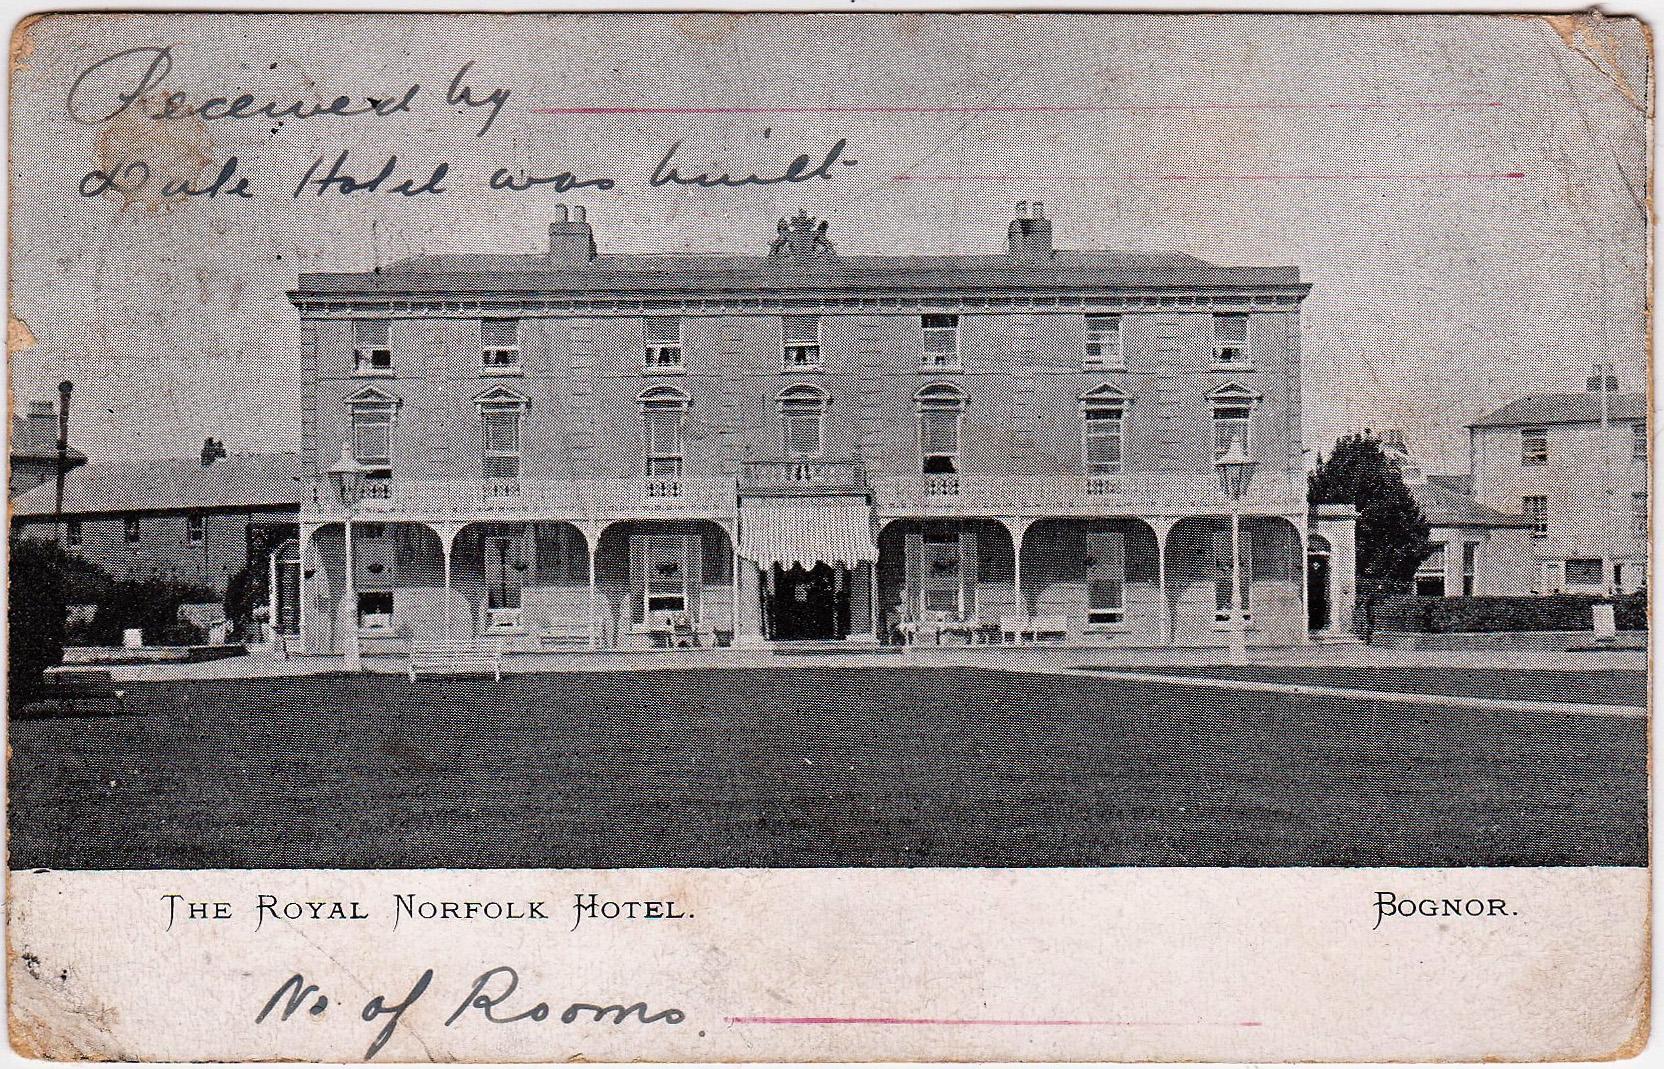 Received by
Date Hotel was built
THE ROYAL NORFOLK HOTEL. BOGNOR.
No. of Rooms.